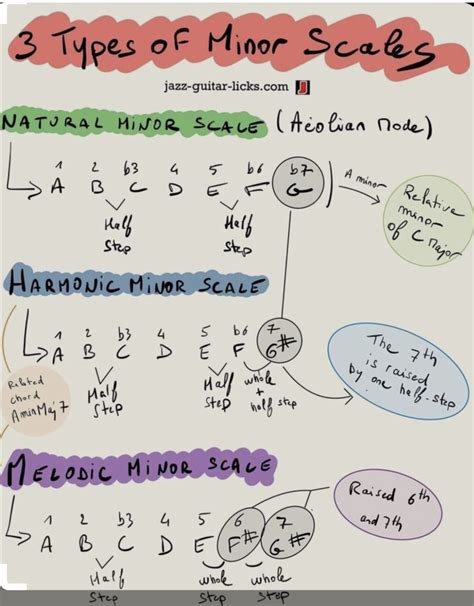 3 Types of Minor Scales
jazz-guitar-licks.com
NATURAL MINOR SCALE (Aeolian Mode)
1 2 b3 4 5 b6 b7
A B C D E F G
A minor
Relative
minor
of C Major
Half
Step
Half
Step
HARMONIC MINOR SCALE
1 2 b3 4 5 b6 7
A B C D E F G#
The 7th
is raised
by one half-step
Related
chord
AminMaj7
Half
Step
Half
Step
whole
+
half step
MELODIC MINOR SCALE
Raised 6th
and 7th
1 2 b3 4 5 6 7
A B C D E F# G#
Half
Step
whole
Step
whole
Step